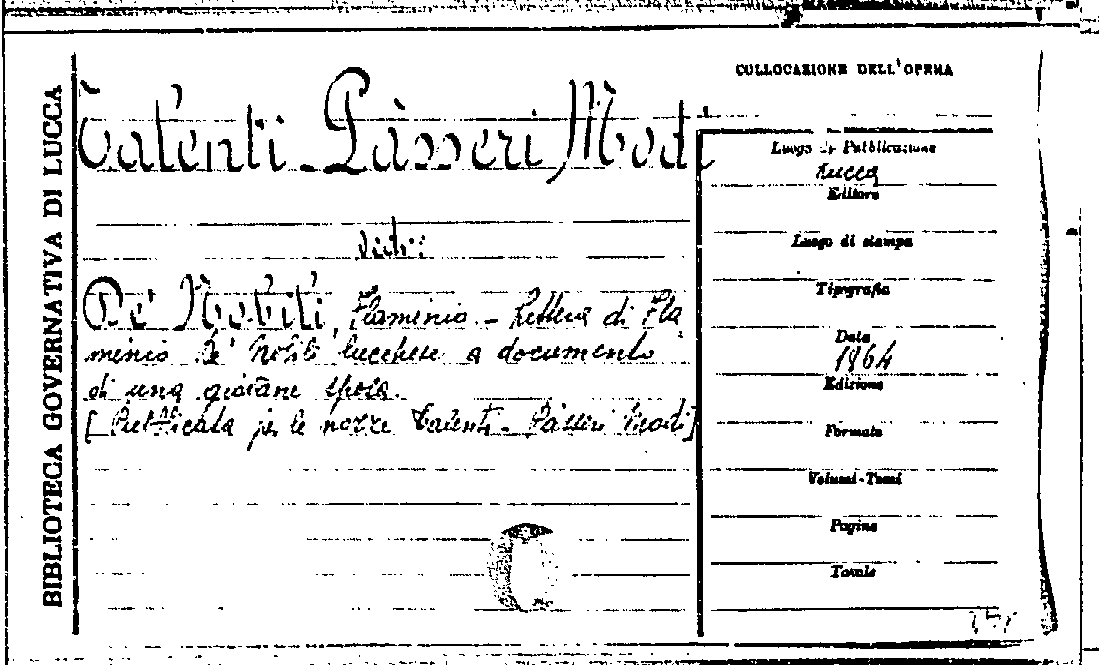 BIBLIOTECA GOVERNATIVA DI LUCCA
Talenti-Pàsseri Modi
vedi:
De' Nobili, Flaminio. - Lettera di Fla
minio De' Nobili lucchese a documento
di una giovane sposa.
[Pubblicata per le nozze Talenti-Pàsseri Modi]
COLLOCAZIONE DELL'OPERA
Luogo di Pubblicazione
Lucca
Editore
Luogo di stampa
Tipografia
Data
1864
Edizione
Formato
Volumi-Tomi
Pagine
Tavole